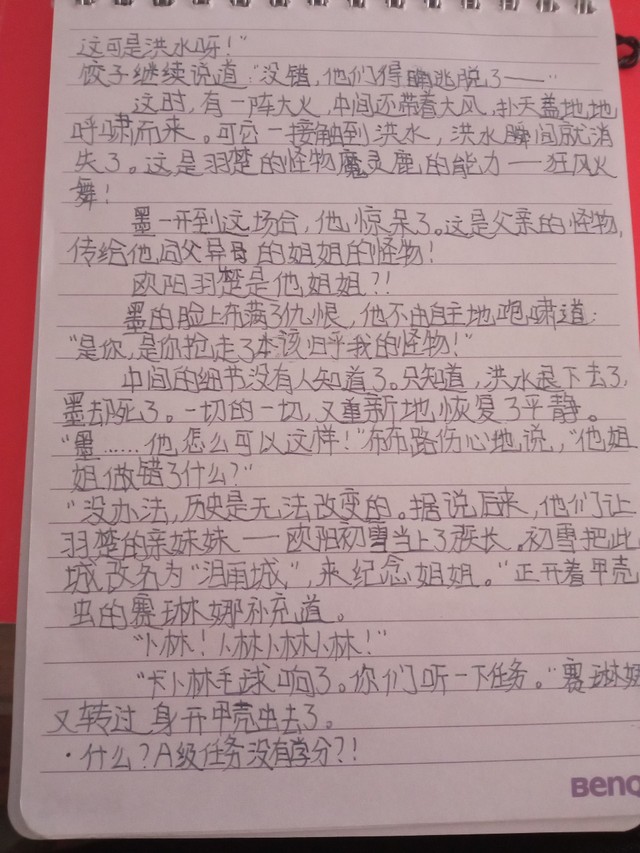 这可是洪水呀！"
饺子继续说道："没错，他们得逃脱了——"
这时，有一阵大火，中间还带着大风，扑天盖地地
呼啸而来。可它一接触到洪水，洪水瞬间就消
失了。这是羽楚的怪物魔灵鹿的能力——狂风火
舞！
墨一开到这场合，他惊呆了。这是父亲的怪物，
传给他同父异母的姐姐的怪物！
欧阳羽楚是他姐姐？！
墨的脸上布满了仇恨，他不由自主地咆啸道：
"是你，是你抢走了本该归乎我的怪物！"
中间的细节没有人知道了。只知道，洪水退下去了，
墨却死了。一切的一切，又重新地恢复了平静。
"墨……他怎么可以这样！"布布路伤心地说，"他姐
姐做错了什么？"
"没办法，历史是无法改变的。据说后来，他们让
羽楚的亲妹妹——欧阳初雪当上了族长。初雪把此
城改名为"泪雨城"，来纪念姐姐。"正开着甲壳
虫的赛琳娜补充道。
"卜林！卜林卜林卜林！"
"卡卜林毛球响了。你们听一下任务。"赛琳娜
又转过身开甲壳虫去了。
·什么？A级任务没有学分？！
BenQ